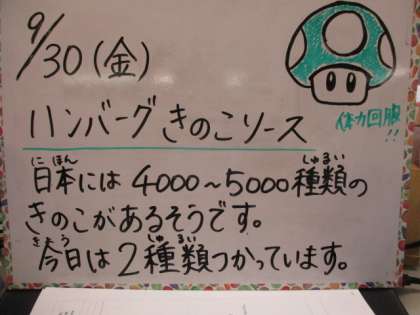 9/30(金)
ハンバーグきのこソース
体力回服!!
にほん しゅるい
日本には4000~5000種類の
きのこがあるそうです。
きょう しゅるい
今日は2種類つかっています。